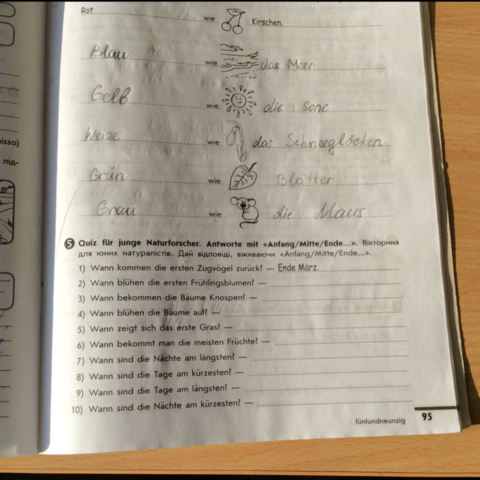 Rot wie Kirschen.
Blau wie das Meer
Gelb wie die Sone
Weize wie das Schneeglöcken
Grün wie Blätter
Grau wie die Maus
5 Quiz für junge Naturforscher. Antworte mit «Anfang/Mitte/Ende...». Вікторина
для юних натуралістів. Дай відповіді, вживаючи «Anfang/Mitte/Ende...».
1) Wann kommen die ersten Zugvögel zurück? — Ende März.
2) Wann blühen die ersten Frühlingsblumen? —
3) Wann bekommen die Bäume Knospen? —
4) Wann blühen die Bäume auf? —
5) Wann zeigt sich das erste Gras? —
6) Wann bekommt man die meisten Früchte? —
7) Wann sind die Nächte am längsten? —
8) Wann sind die Tage am kürzesten? —
9) Wann sind die Tage am längsten? —
10) Wann sind die Nächte am kürzesten? —
fünfundneunzig 95
isso)
під-